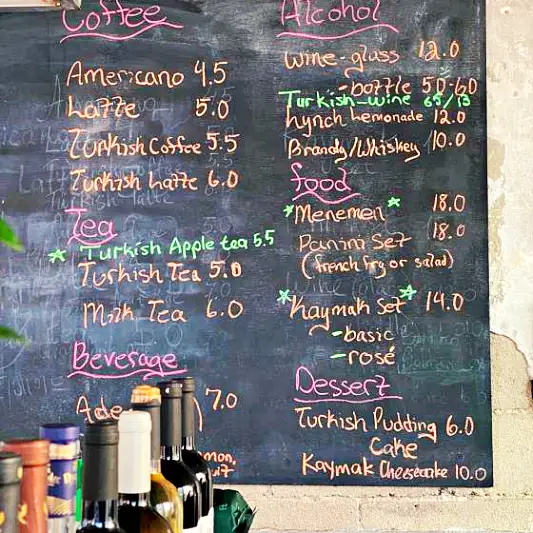 Coffee
Americano 4.5
Latte 5.0
Turkish Coffee 5.5
Turkish Latte 6.0
Tea
Turkish Apple tea 5.5
Turkish Tea 5.0
Milk Tea 6.0
Beverage
Ade 7.0
Alcohol
Wine-glass 12.0
-bottle 50-60
Turkish-wine 65/13
Lynch Lemonade 12.0
Brandy/Whiskey 10.0
food
Menemen 18.0
Panini Set 18.0
(french fry or salad)
Kaymak Set 14.0
-basic
-rosé
Dessert
Turkish Pudding 6.0
Cake
Kaymak Cheesecake 10.0